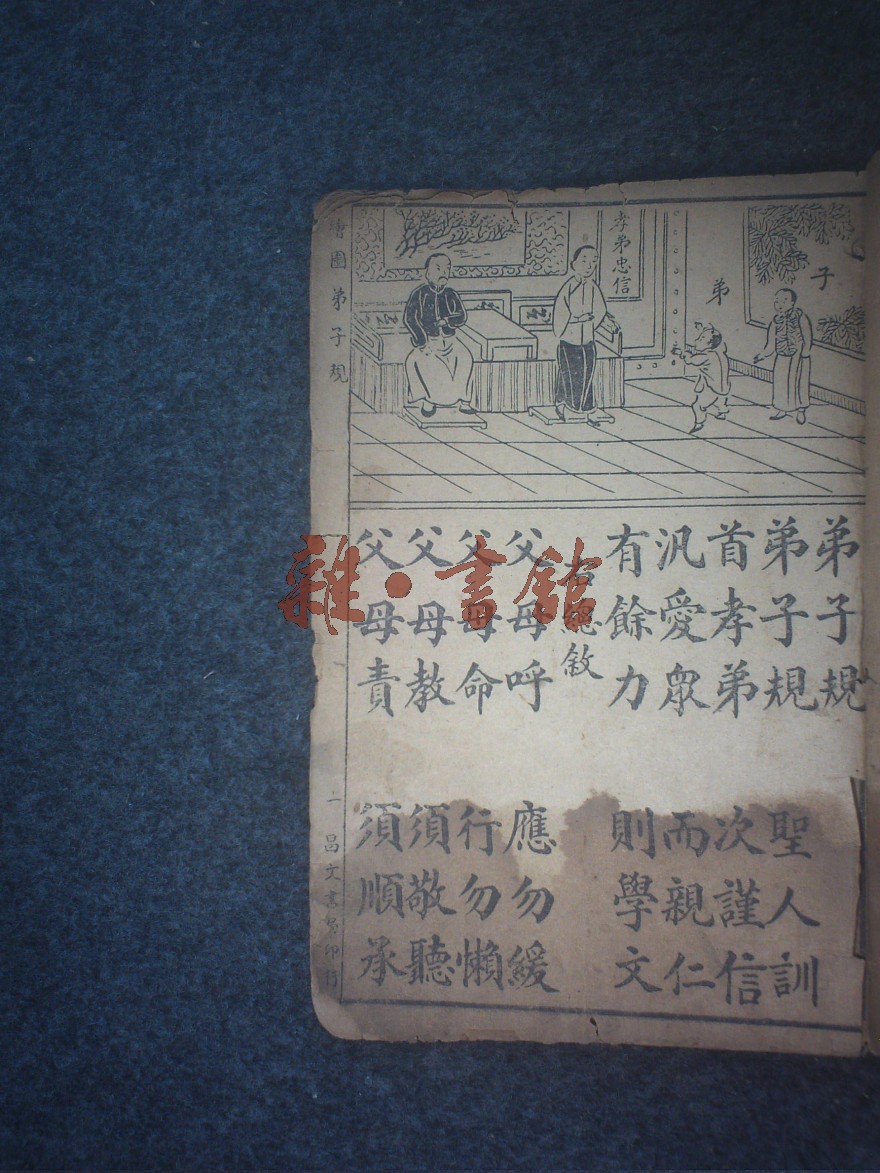 子
弟
孝弟忠信
弟子規
弟子規 聖人訓
首孝弟 次謹信
汎愛眾 而親仁
有餘力 則學文
右總敘
父母呼 應勿緩
父母命 行勿懶
父母教 須敬聽
父母責 須順承
繪圖弟子規
一
昌文書局印行
雜·書館